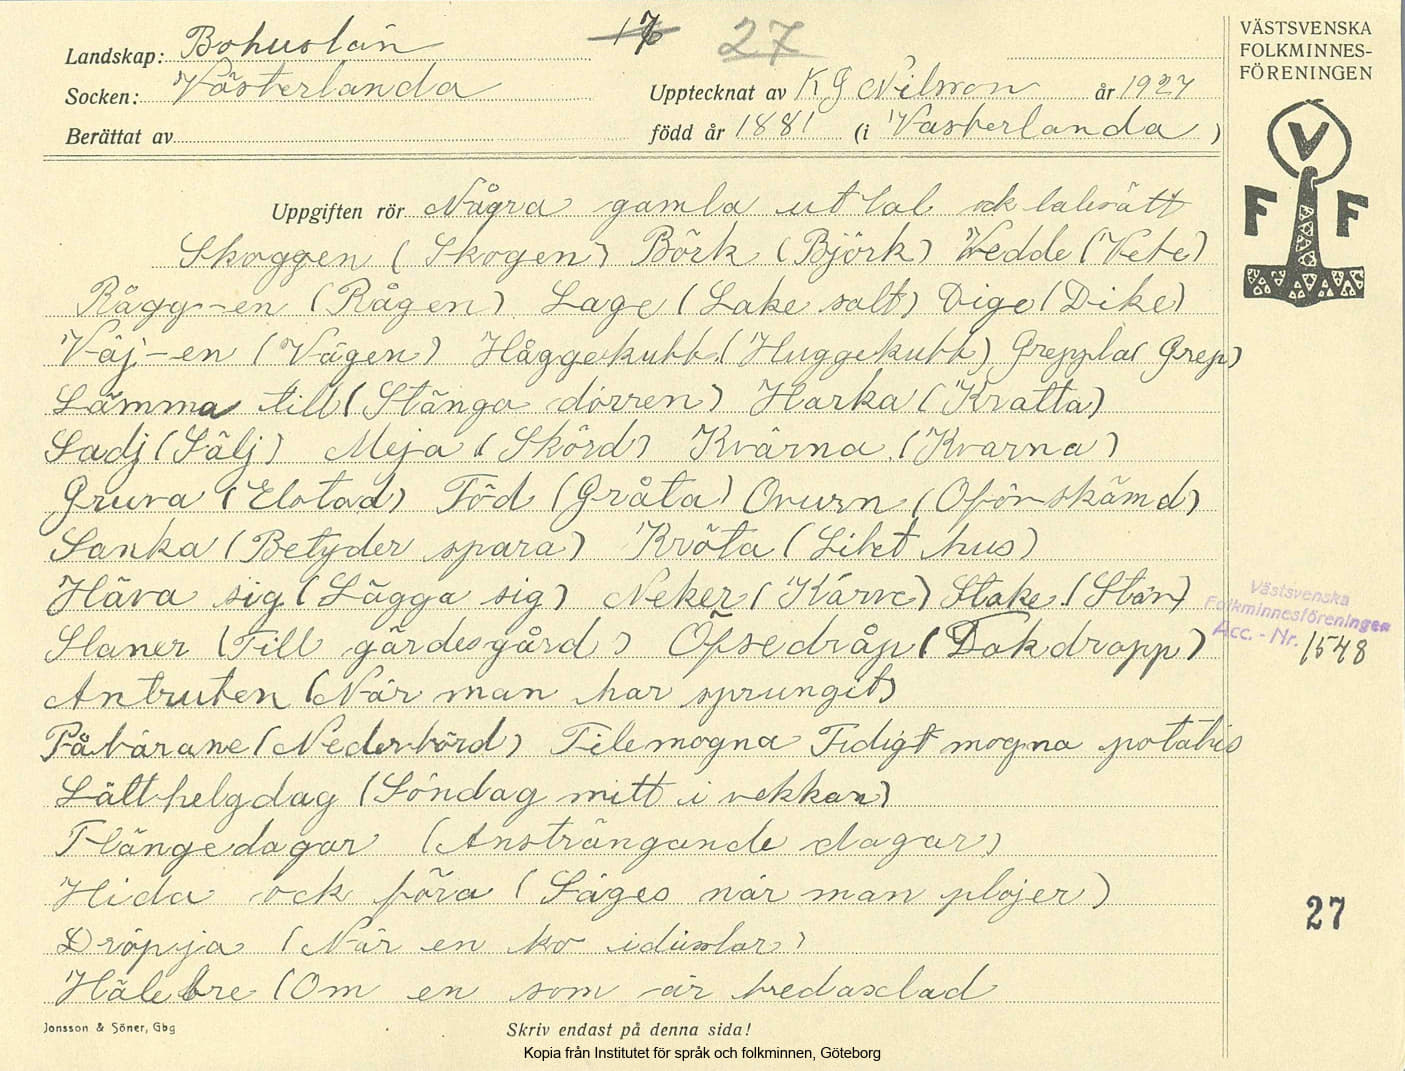 Landskap: Bohuslän
Socken: Västerlanda
Berättat av
17 27
Upptecknat av K G Nilsson år 1927
född år 1881 (i Vasterlanda )
VÄSTSVENSKA
FOLKMINNES-
FÖRENINGEN
V
F F
Uppgiften rör Några gamla uttal ock talesätt
Skoggen (Skogen) Börk (Björk) Vedde (Vete)
Rågg-en (Rågen) Lage (Lake salt) Dige (Dike)
Väj-en (Vägen) Håggekubb (Huggekubb) Greppla( Grep)
Lämma till (Stänga dörren) Harka (Kratta)
Sadj (Sälj) Meja (Skörd) Kvärna (Kvarna)
Gruva (Elstad) Töd (Gråta) Ovurn (Oförskämd)
Sanka (Betyder spara) Kröta (Litet hus)
Häva sig (Lägga sig) Neker (Kärve) Stake (Stör)
Slaner (Till gärdesgård) Öfsedråp (Takdropp)
Antruten (När man har sprungit)
Påbärane (Nederbörd) Tilemogna Tidigt mogna potatis
Lälthelgdag (Söndag mitt i vekkan)
Flängedagar (Ansträngande dagar)
Hida ock föra (Säges när man plöjer)
Dröpja (När en ko idisslar)
Häle bre (Om en som är bredaxlad
Västsvenska
Folkminnesföreningen
Acc. - Nr. 1548
27
Jonsson & Söner, Gbg
Skriv endast på denna sida!
Kopia från Institutet för språk och folkminnen, Göteborg